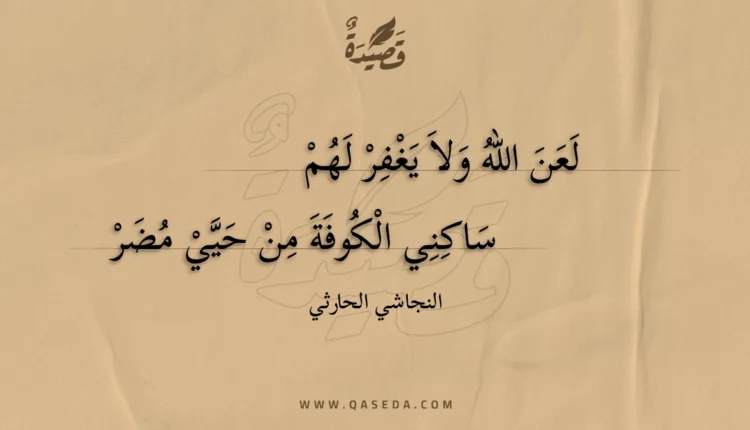 قَصِيدَةٌ
لَعَنَ اللهُ وَلاَ يَغْفِرْ لَهُمْ
سَاكِنِي الْكُوفَةَ مِنْ حَيَّيْ مُضَرْ
النجاشي الحارثي
WWW.QASEDA.COM